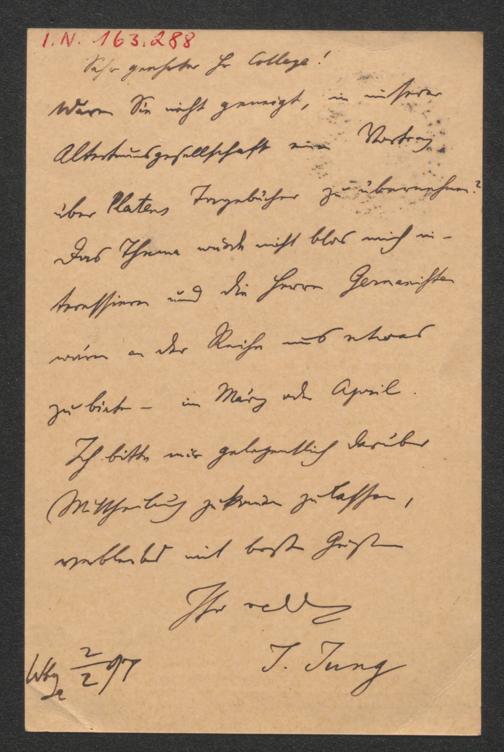 I.N. 163.288
Sehr geehrter Hr College!
Wären Sie nicht geneigt, in unserer
Altertumsgesellschaft einen Vortrag
über Platens Tagebücher zu übernehmen?
Das Thema würde nicht blos mich in-
teressieren und die Herren Germanisten
wären an der Reihe uns etwas
zu bieten – im März oder April.
Ich bitte mir gelegentlich darüber
Mittheilung zukommen zu lassen,
verbleibend mit besten Grüßen
Ihr
J. Jung
2/2 97